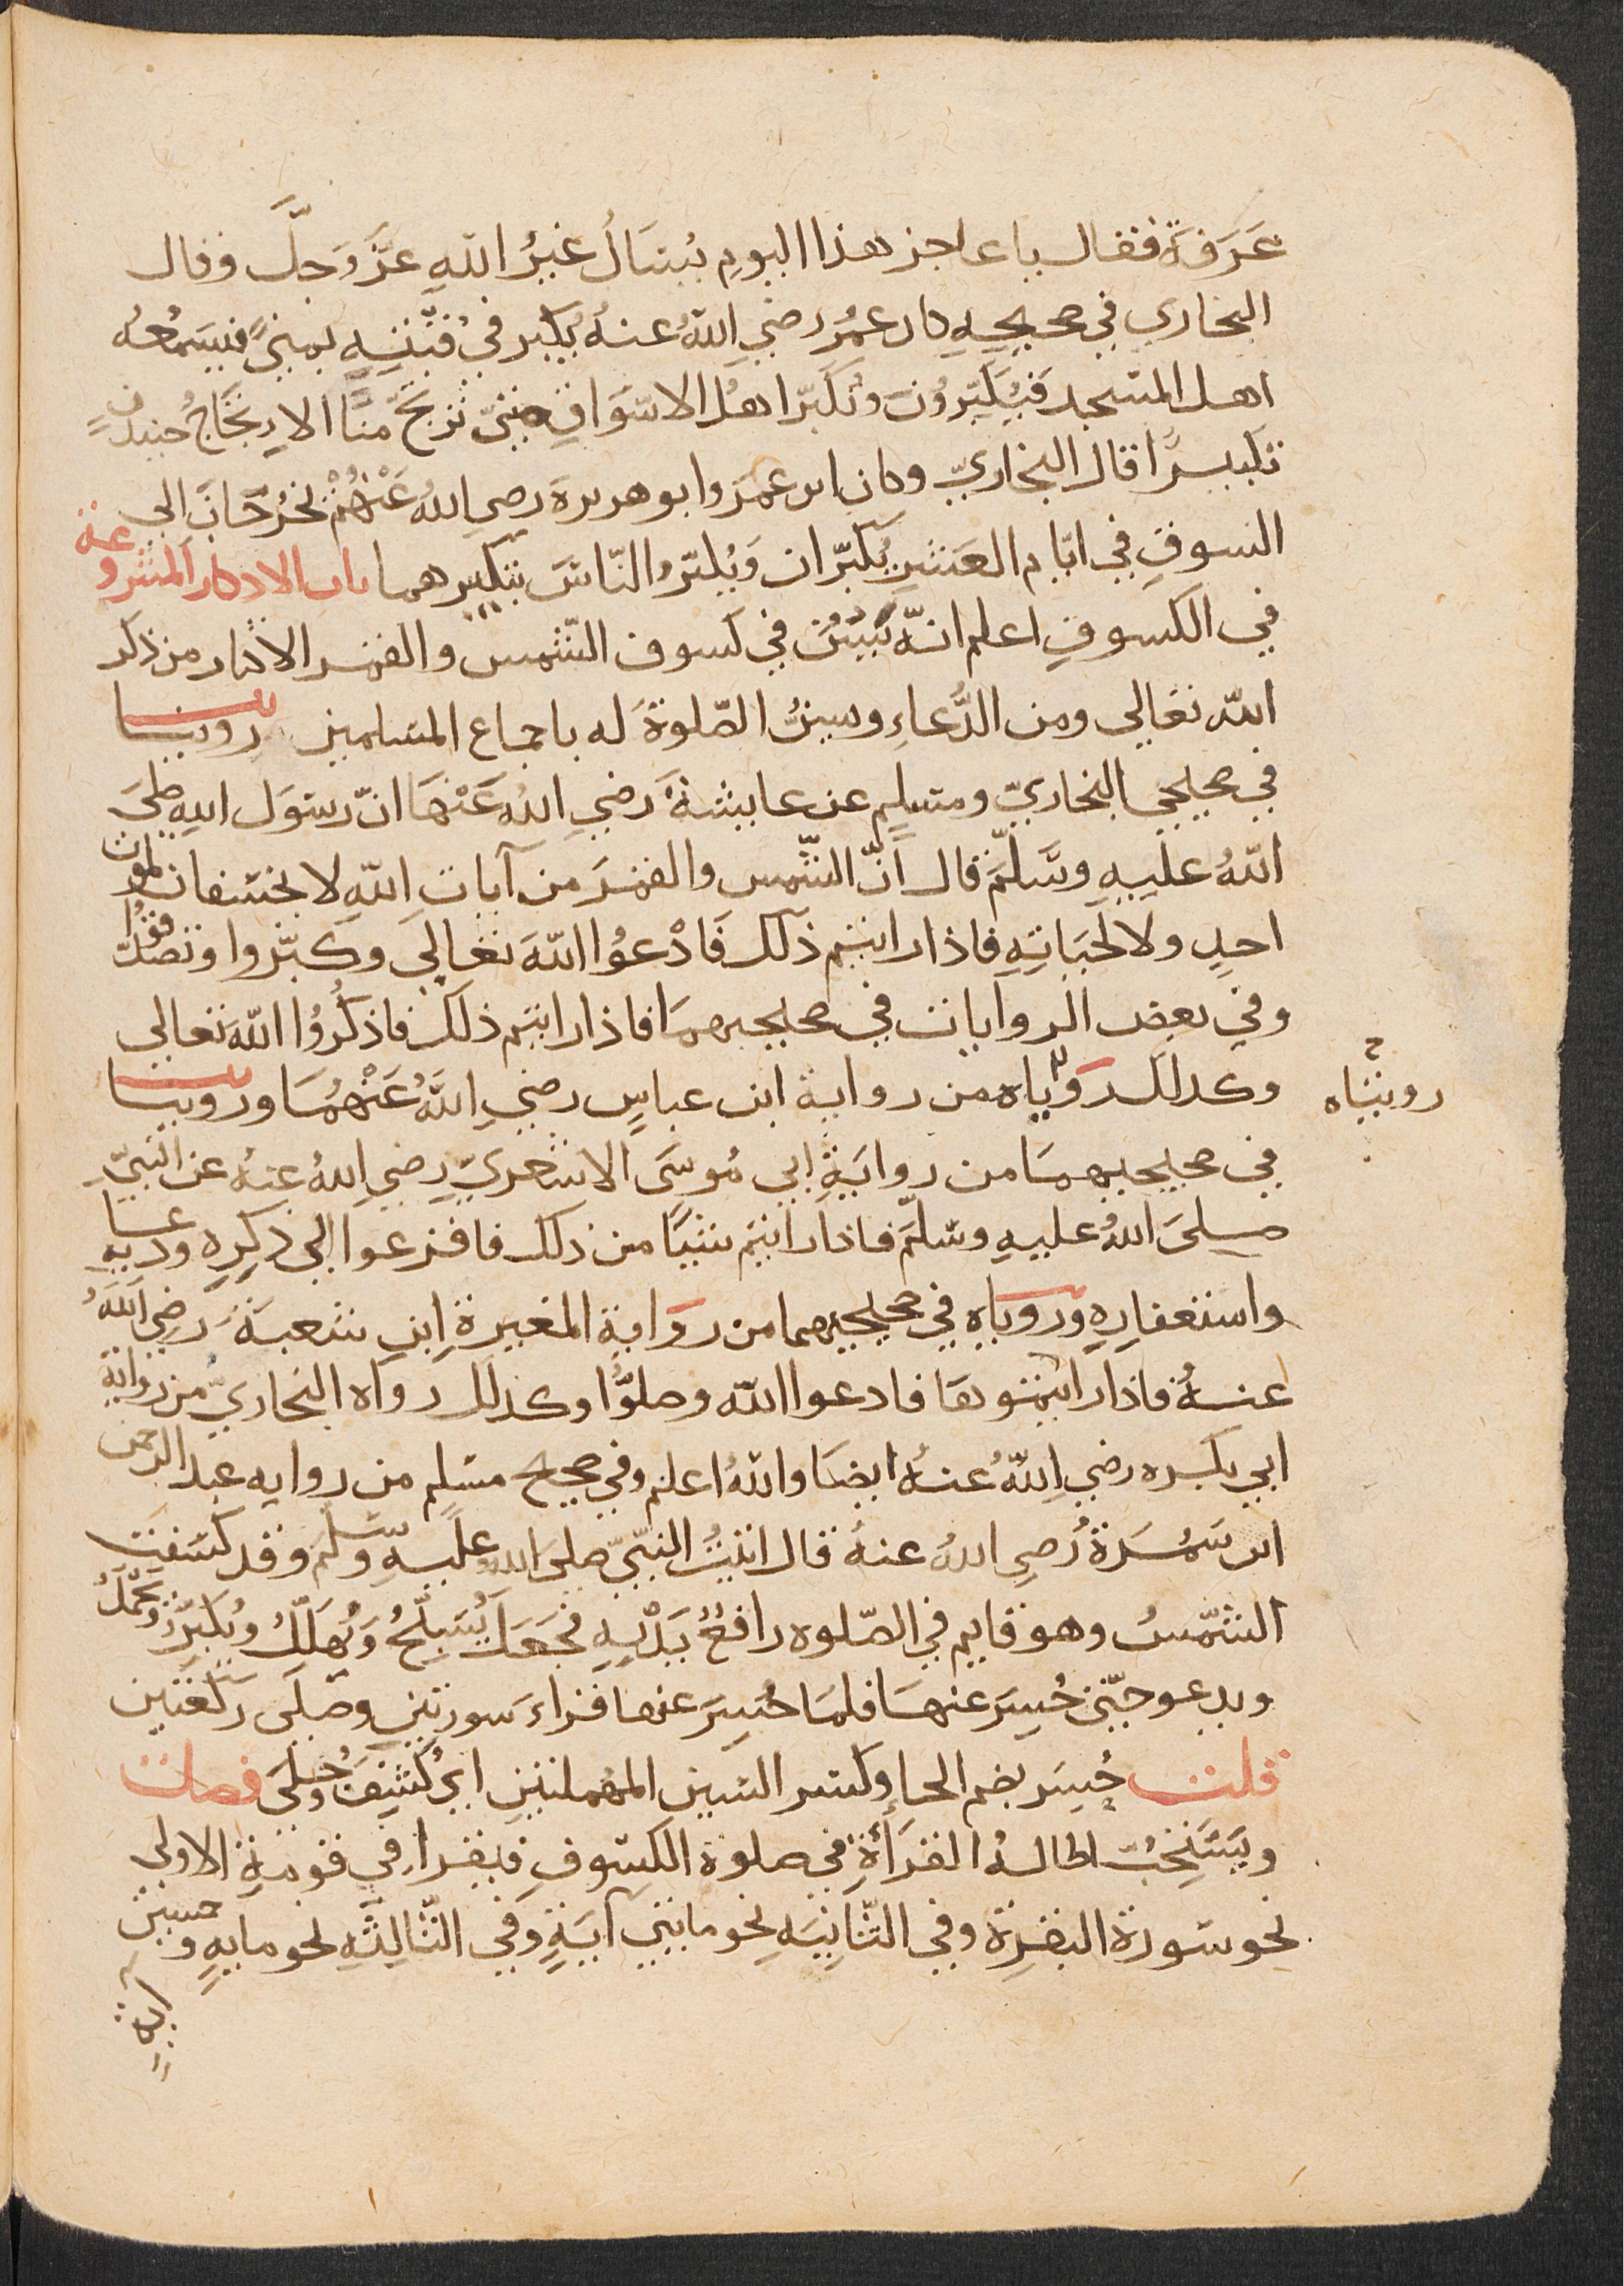 عَرَفَةَ فقال يا عاجز هذا اليومِ يُسْأَلُ غيرُ اللهِ عزَّ وَجلَّ وقال
البخاري في صحيحِهِ كان عمُرُ رضي اللهُ عنهُ يُكبِّر في قُبَّتِهِ بمنىً فيَسمعُهُ
اهل المسجد فَيُكَبِّرُونَ ويُكَبِّر اهلُ الاسْوَاقِ حتىّ ترتجَّ مِنًا الارتجَاجُ حنيذٍ
تكبيرًا قال البخاريّ وكان ابن عمرَ وابو هريرةَ رضي اللهُ عَنْهُمْ يخرُجَانِ الي
السوقِ في ايّام العَشرِ يُكبّران وَيُكبّرُ النّاسَ بتكبيرهما باب الاذكار المشروعة
في الكسوفِ اعلم انّه يُسَنُّ في كسوف الشّمس والقمر الاكثار من ذكر
الله تعَالي ومن الدُّعاءِ وسينُّ الصّلوةَ له باجماع المسلمين روينا
في صحيحي البخاريّ ومسلمٍ عن عايشةَ رضي اللهُ عَنْهَا انّ رسوَل اللهِ صلىَ
اللهُ عليهِ وسَّلَّمَ قال اَنَّ الشّمس والقمرَ من آيات اللهِ لا يخسفان لموت
احدٍ ولا لحيَاتِهِ فاذا رايتم ذلك فَادْعُوُا اللهَ تعَالَي وكبّروا وتصدّقوُا
وفي بعض الروايات في صحيحيهمَا فاذا رايتم ذلك فاذكُروُا اللهَ تعالي
وكذلك روّياه من رواية ابن عباسٍ رضي اللهُ عَنْهُمَا وروينا
روينَاه
في صحيحيهمَا من روايَةِ ابي مُوسَى الاشعريّ رضي اللهُ عنهُ عن النبيّ
صلىَ اللهُ عليهِ وسَلّمَ فاذا رايتم شيًا من ذلك فافزعوا الي ذكرِهِ ودعايهِ
واستغفارِهِ وروياه في صحيحيهما من رواية المغيرةِ ابنِ شعبةَ رضي اللهُ
عنهُ فاذا رايتموها فادعوا الله وصلوُّا وكذلك رواه البخاريّ من رواية
ابي بكره رضي اللهُ عنهُ ايضَا واللهُ اعلم وفي صحيح مسلم من روايه عبد الرحمن
ابن سَمُرَةَ رضي اللهُ عنهُ قال اتيتُ النبّيّ صلىَ الله عليهِ وسلّمَ وقد كسَفتِ
الشّمسُ وهو قايم في الصّلوه رافعٌ يَدْيهِ فجَعَل يُسَبِّحُ وَيُهَلّلُ ويُكبّرُ ويَحْمَدُ
ويدعو حتىّ حُسِرَ عنهَا فلمَا حُسِرَ عنها قراءَ سورتينِ وصَلّى ركعَتين
قلت حُسِر بضم الحا وكسر السين المهملتين اي كُشِفَ وجُلي فصل
ويَستحِبُّ اطالة القرَأةِ في صلوة الكسُوفِ فيقرا في قومةِ الاولي
نحو سَورة البقرة وفي الثّانيَهِ نحو مايتي آيةٍ وفي الثّالثَهِ نحو مايهٍ وخمسين
ايةٍ